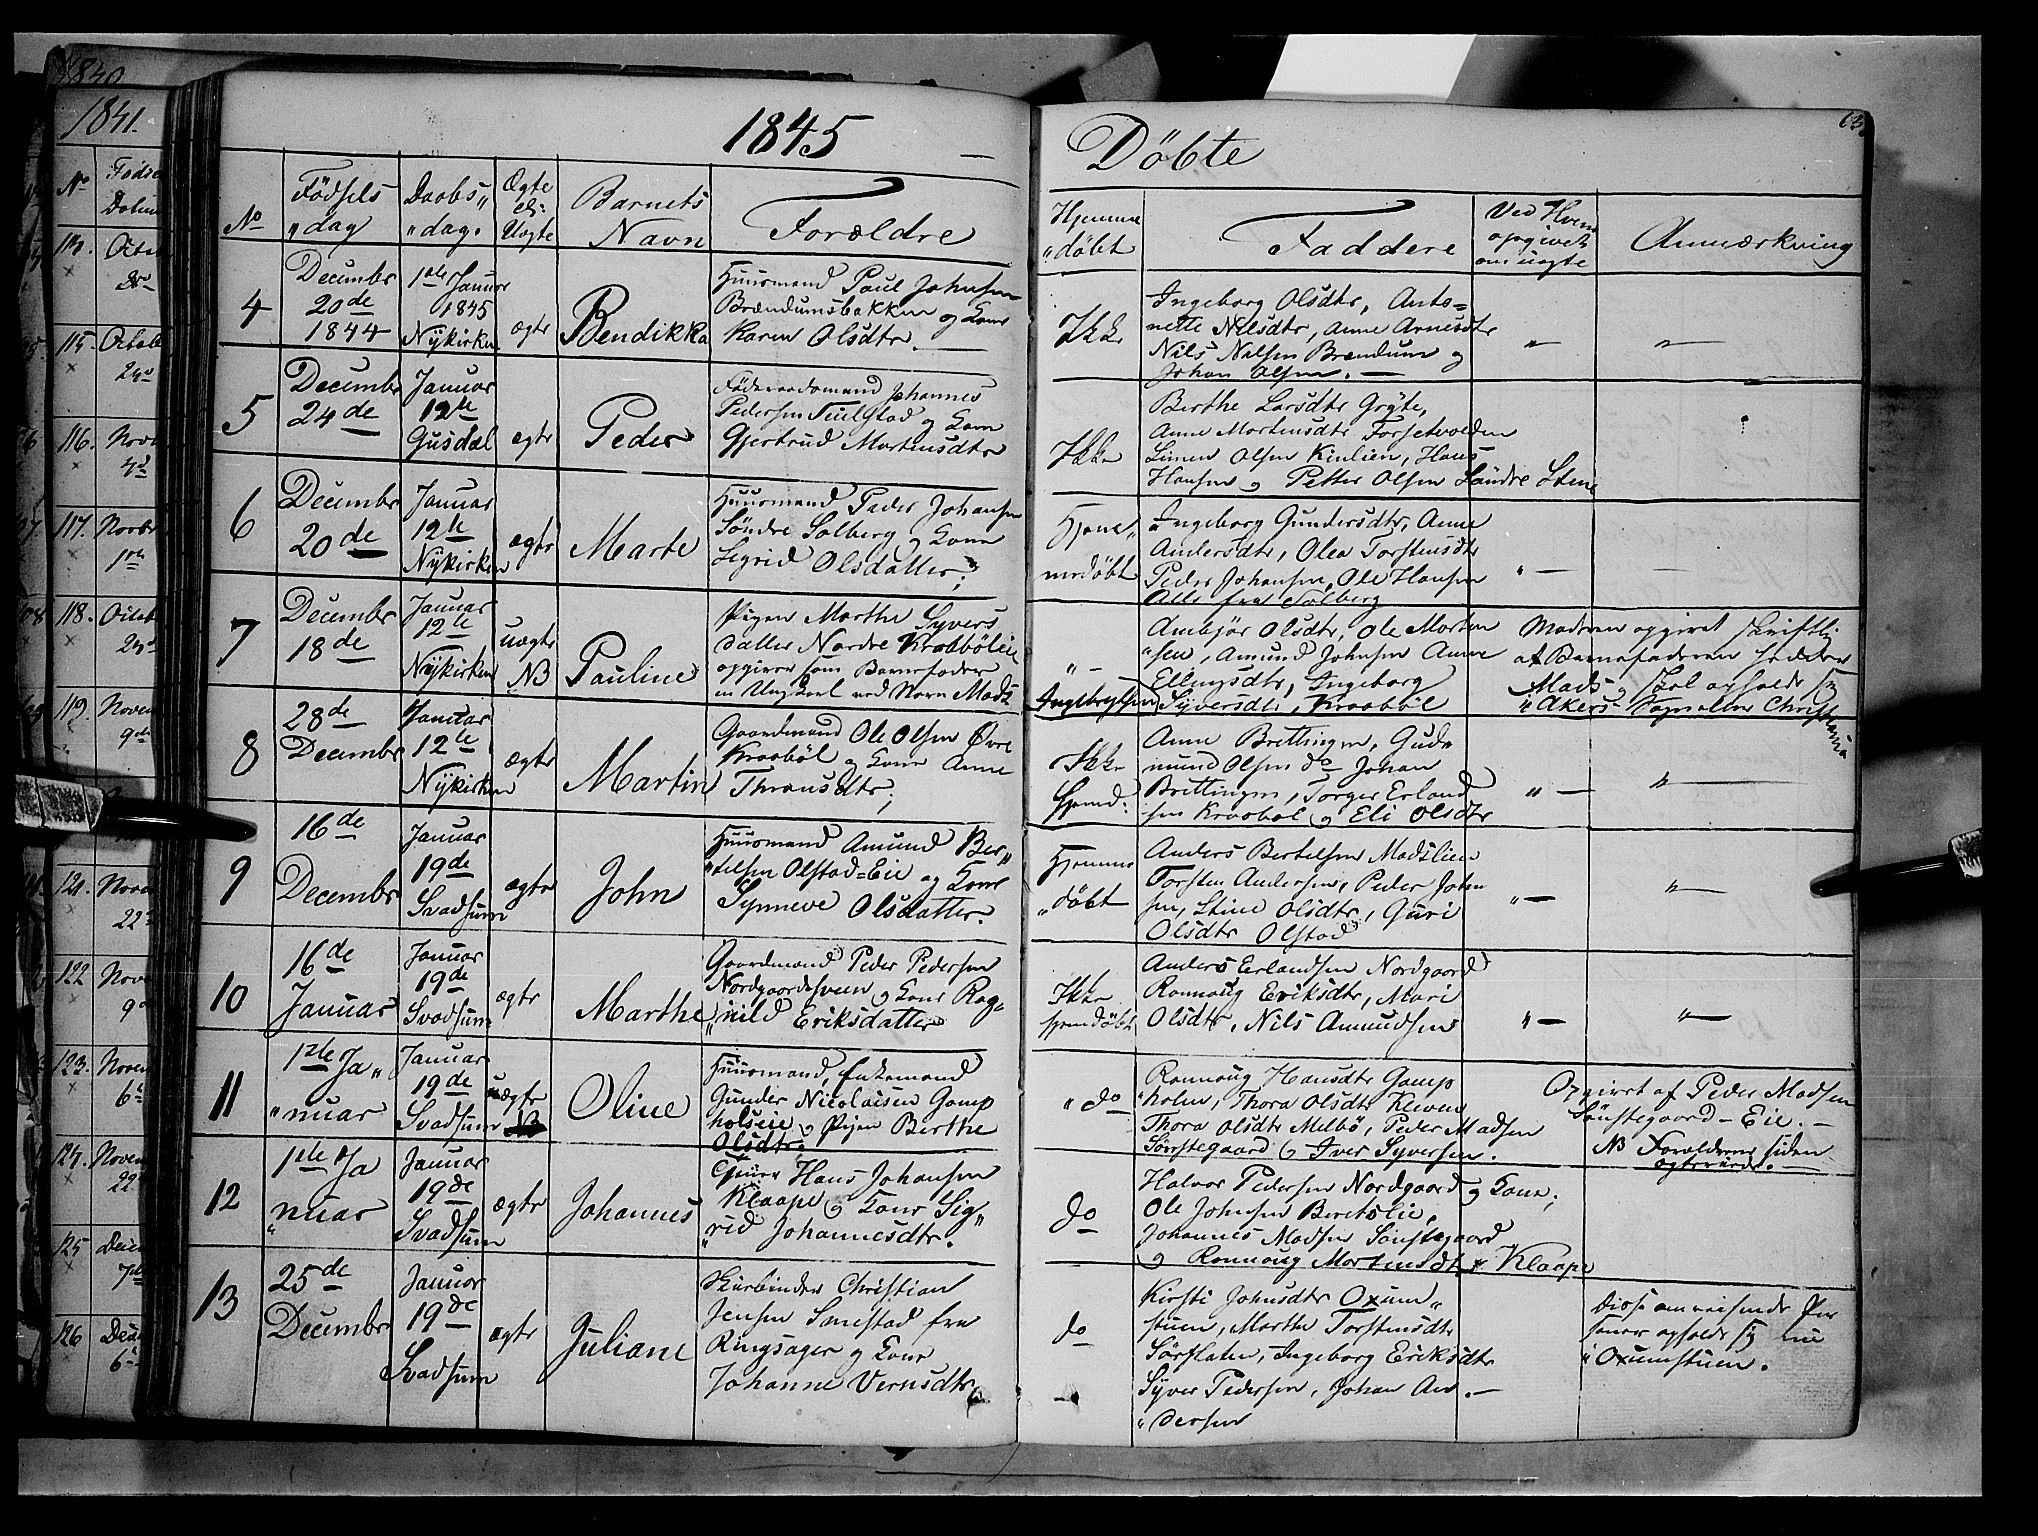 1840
1841.
1845 — Döbte
63
No
Födsels
"dag
Daabs"
"dag.
Ægte
el:
Uægte
Barnets
Navn
Forældre
Hjemme
"döbt
Faddere
Ved Hvem
opgivet
om uægte
Anmærkning
4
Decembr
20de
1844
1ste Januar
1845
Nykirken
ægte
Bendikka
Huusmand Paul Johnsen
Brændumsbakken og Kone
Karen Olsdtr. —
Ikke
Ingeborg Olsdtr, Anto=
nette Nilsdtr, Anne Arnesdtr
Nils Nilsen Brændum og
Johan Olsen. —
"
"
5
Decembr
24de
Januar
12te
Gusdal
ægte
Peder
Föderaadsmand Johannes
Pedersen og Kone
Gjertrud Mortensdtr
Ikke
Berthe Larsdtr Gryte,
Anne Mortensdtr Forsetvolden
Simen Olsen Kinlien, Hans
Hansen og Petter Olsen Söndre Stene
6
Decembr
20de
Januar
12te
Nykirken
ægte
Marte
Huusmand Peder Johansen
Söndre Solberg og Kone
Sigrid Olsdatter;
Hjem"
medöbt
Ingeborg Gundersdtr, Anne
Andersdtr, Olea Torstensdtr
Peder Johansen, Ole Hansen
Alle fra Solberg
" —
—
7
Decembr
18de
Januar
12te
Nykirken
uægte
NB
Pauline
Pigen Marthe Syvers
datter Nordre Kraabölie
opgiver som Barnefader
en Ungkarl ved Navn Mads
Ingebrigtsen
" —
Ambjör Olsdtr, Ole Morten
"sen, Amund Johnsen Anne
Ellingsdtr, Ingeborg
Syversdtr, Kraaböl
Moderen opgivet skriftlig
at Barnefaderen hedder
Mads og skal opholde sig
i Akers Sognalm Christiania
8
28de
Decembr
Januar
12te
Nykirken
ægte
Martin
Gaardmand Ole Olsen Övre
Kraaböl og Kone Anne
Thronsdtr;
Ikke
hjemd:
Anne Brettingen, Gud=
mund Olsen do Johan
Brettingen, Torger Erland
sen Kraaböl og Eli Olsdtr
" —
"
9
16de
Decembr
Januar
19de
Svadsum
ægte
John
Huusmand Amund Ber"
"telsen Olstad=Eie og Kone
Synneve Olsdatter.
Hjemme
"döbt
Anders Bertelsen Madslien
Torsten Andersen, Peder John
sen, Stine Olsdtr, Guri
Olsdtr Olstad
" —
"
10
16de
Januar
Januar
19de
Svadsum
ægte
Marthe
Gaardmand Peder Pedersen
Nordgaardssveen og Kone Rag=
"nild Eriksdatter
Ikke
hjemdöbt
Anders Erlandsen Nordgaard
Rannoug Eriksdtr, Mari
Olsdtr, Nils Amundsen
" —
"
11
1ste Ja"
"nuar
Januar
19de
Svadsum
uægte
NB
Oline
Huusmand, Enkemand
Gunder Nicolaisen Gamp
holseie og Pigen Berthe
Olsdtr.
" do
Rannoug Hansdtr Gamp
"holm, Thora Olsdtr Kleven
Thora Olsdtr Melbö, Peder Madsen
Sönstegaard og Iver Syversen.
Opgivet af Peder Madsen
Sönstegaard-Eie. —
NB Forældrene siden
ægteviede. —
12
1ste Ja
"nuar
Januar
19de
Svadsum
ægte
Johannes
Hans Johansen
Klaape og Kone Sig"
"rid Johannesdtr.
do
Halvor Pedersen Nordgaard og Kone;
Ole Johnsen Beretslie,
Johannes Madsen Sönstegaard
og Rannoug Mortensdtr Klaape
13
25de
Decembr
Januar
19de
Svadsum
ægte
Juliane
Skorbinder Christian
Jensen Smestad fra
Ringsager og Kone
Johanne Vernsdtr
do
Kirsti Johnsdtr Oxum"
stuen, Marthe Torstensdtr
Sörflaten, Ingeborg Eriksdtr
Syver Pedersen, Johan An. —
"dersen
Disse omreisende Per
soner opholde sig nu
i Oxumstuen.
No
Fødse
Datum
115.
Octob
24d
116.
Nov
4d
117.
Novbr
1ste
118.
Octob
24d
119.
Novem
9de
121.
Novem
22d
122
Nove
9d
123.
Noven
6d
124.
Noven
22d
125
Decem
7de
126
Decem
6d